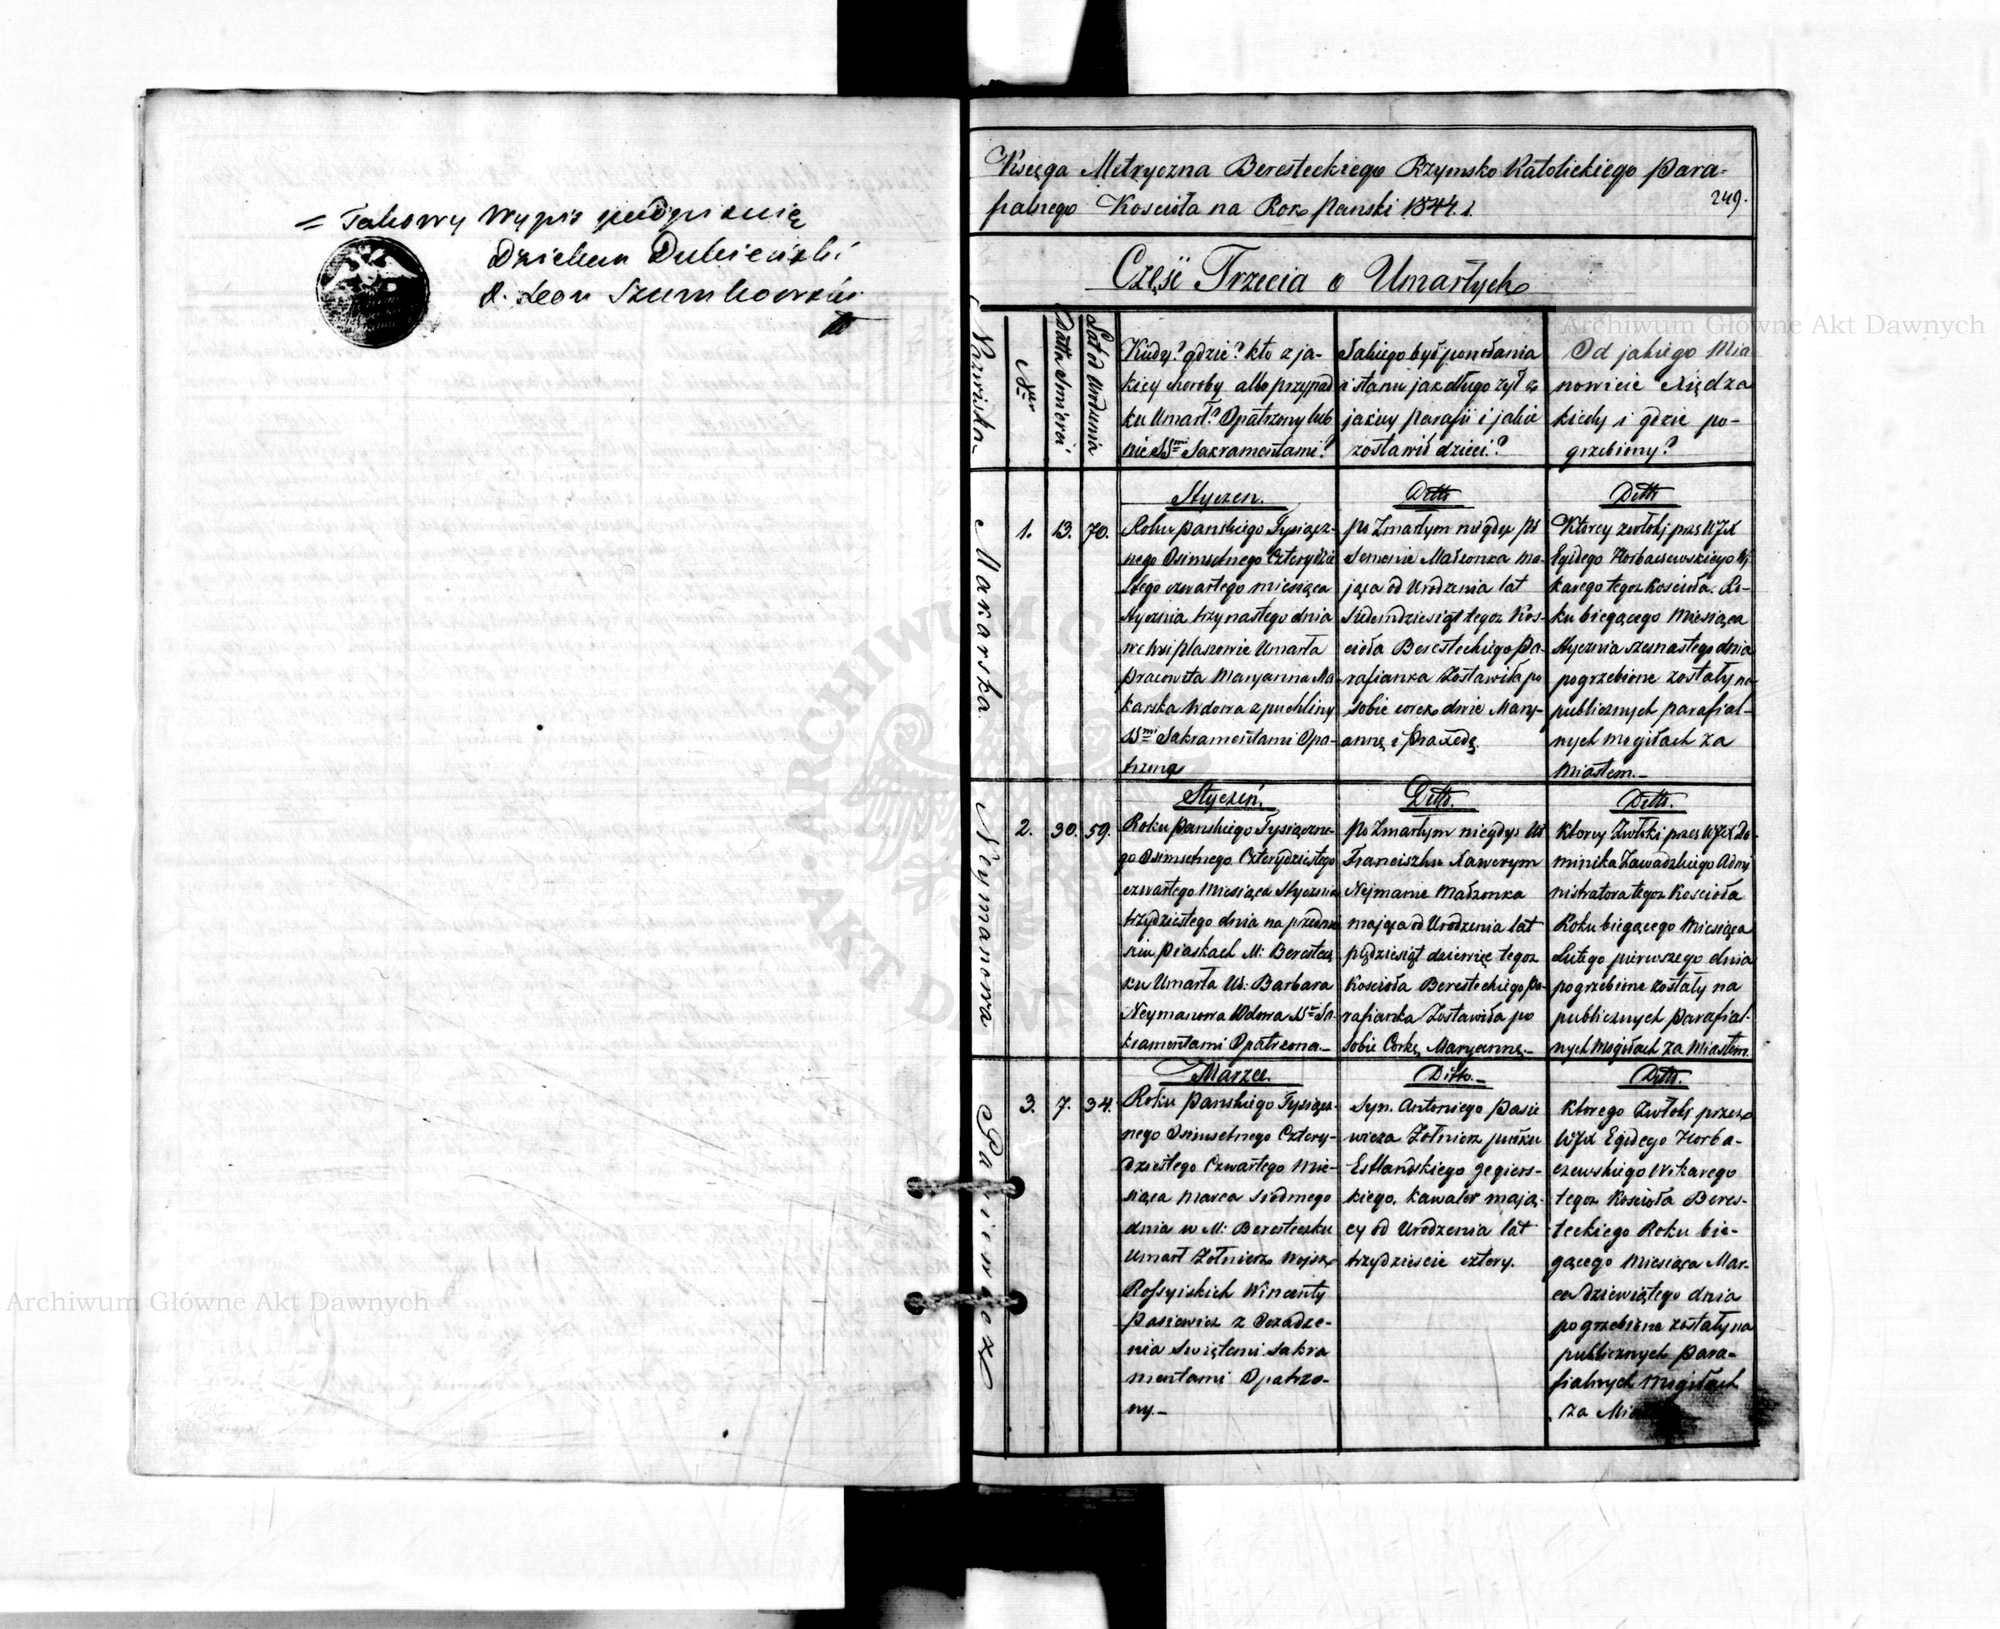 = Takowy Wypis podpisuię
Dziekan Dubieński
X. Leon Szumkowski
Księga Metryczna Beresteckiego Rzymsko Katolickiego Para-
fialnego Kościoła na Rok Panski 1844.
249.
Część Trzecia o Umarłych
Nazwiska
Data Smierci
Lat od Urodzenia
Kiedy? gdzie? kto z ja-
kiey choroby albo przypad
ku Umarł? Opatrzony lub
nie SSmi Sakramentami?
Jakiego był powołania
i stanu jak długo żył z
jakiey parafii i jakie
zostawił dzieci?
Od jakiego Mia
nowicie Xiędza
kiedy i gdzie po-
grzebiony?
Makarska
1.
13.
70.
Styczen.
Roku Pańskiego Tysiącz-
nego Osimsetnego Czterydzie
stego czwartego miesiąca
Stycznia trzynastego dnia
Umarła
Pracowita Maryanna Ma-
karska Wdowa z puchliny
SSmi Sakramentami Opa-
trzona
Ditto
po Zmarłym niegdy
Semenie Małżonka ma-
jąca od Urodzenia lat
Siedemdziesiąt tegoz Kos-
cioła Beresteckiego Pa-
rafianka Zostawiła po
sobie corek dwie Mary-
annę i Praxedę.
Ditto
Ktorey zwłoki przez WJX
Egidego Horbaczewskiego Wi
karego tegoz Kościoła. Ro-
ku biegącego Miesiąca
Stycznia szesnastego dnia
pogrzebione zostały na
publicznych parafial-
nych mogiłach za
Miastem.-
Neymanowa
2.
30.
59.
Styczeń.
Roku Pańskiego Tysiączne-
go Osimsetnego Czterydziestego
czwartego Miesiąca Stycznia
trzydziestego dnia na przedmie
ściu Piaskach M: Berestecz
ku Umarła Ur: Barbara
Neymanowa Wdowa SSmi Sa-
kramentami Opatrzona.-
Ditto.
Po Zmarłym niegdys Ur
Franciszku Xawerym
Nejmanie Małżonka
mająca od Urodzenia lat
pędziesiąt dziewięc tegoz
Kościoła Beresteckiego Pa-
rafianka Zostawiła po
sobie Corkę Maryannę.-
Ditto.
Ktorey Zwłoki przez WJX Do-
minika Zawadzkiego Admi
nistratora tegoz Kościoła
Roku biegącego Miesiąca
Lutego pierwszego dnia
pogrzebione zostały na
publicznych Parafial-
nych Mogiłach za Miastem.
Pasiewicz
3.
7.
34.
Marzec.
Roku Pańskiego Tysiącz-
nego Osimsetnego Cztery-
dziestego Czwartego Mie-
siąca Marca Siodmego
dnia w M: Beresteczku
Umarł Zołnierz Wojsk
Rossyiskich Wincenty
Pasiewicz z
Swiętemi Sakra
mentami Opatrzo-
ny.-
Ditto.-
Syn. Antoniego Pasie
wicza Żołnierz pułku
Estlandskiego jegiers-
kiego, kawaler mają-
cy od Urodzenia lat
trzydzieście cztery.
Ditto.
Ktorego Zwłoki przez
WJX Egidego Horba-
czewskiego Wikarego
tegoz Kościoła Beres-
teckiego Roku bie-
gącego Miesiąca Mar-
ca dziewiątego dnia
pogrzebione zostały na
publicznych Para-
fialnych Mogiłach
za
Archiwum Główne Akt Dawnych
Archiwum Główne Akt Dawnych